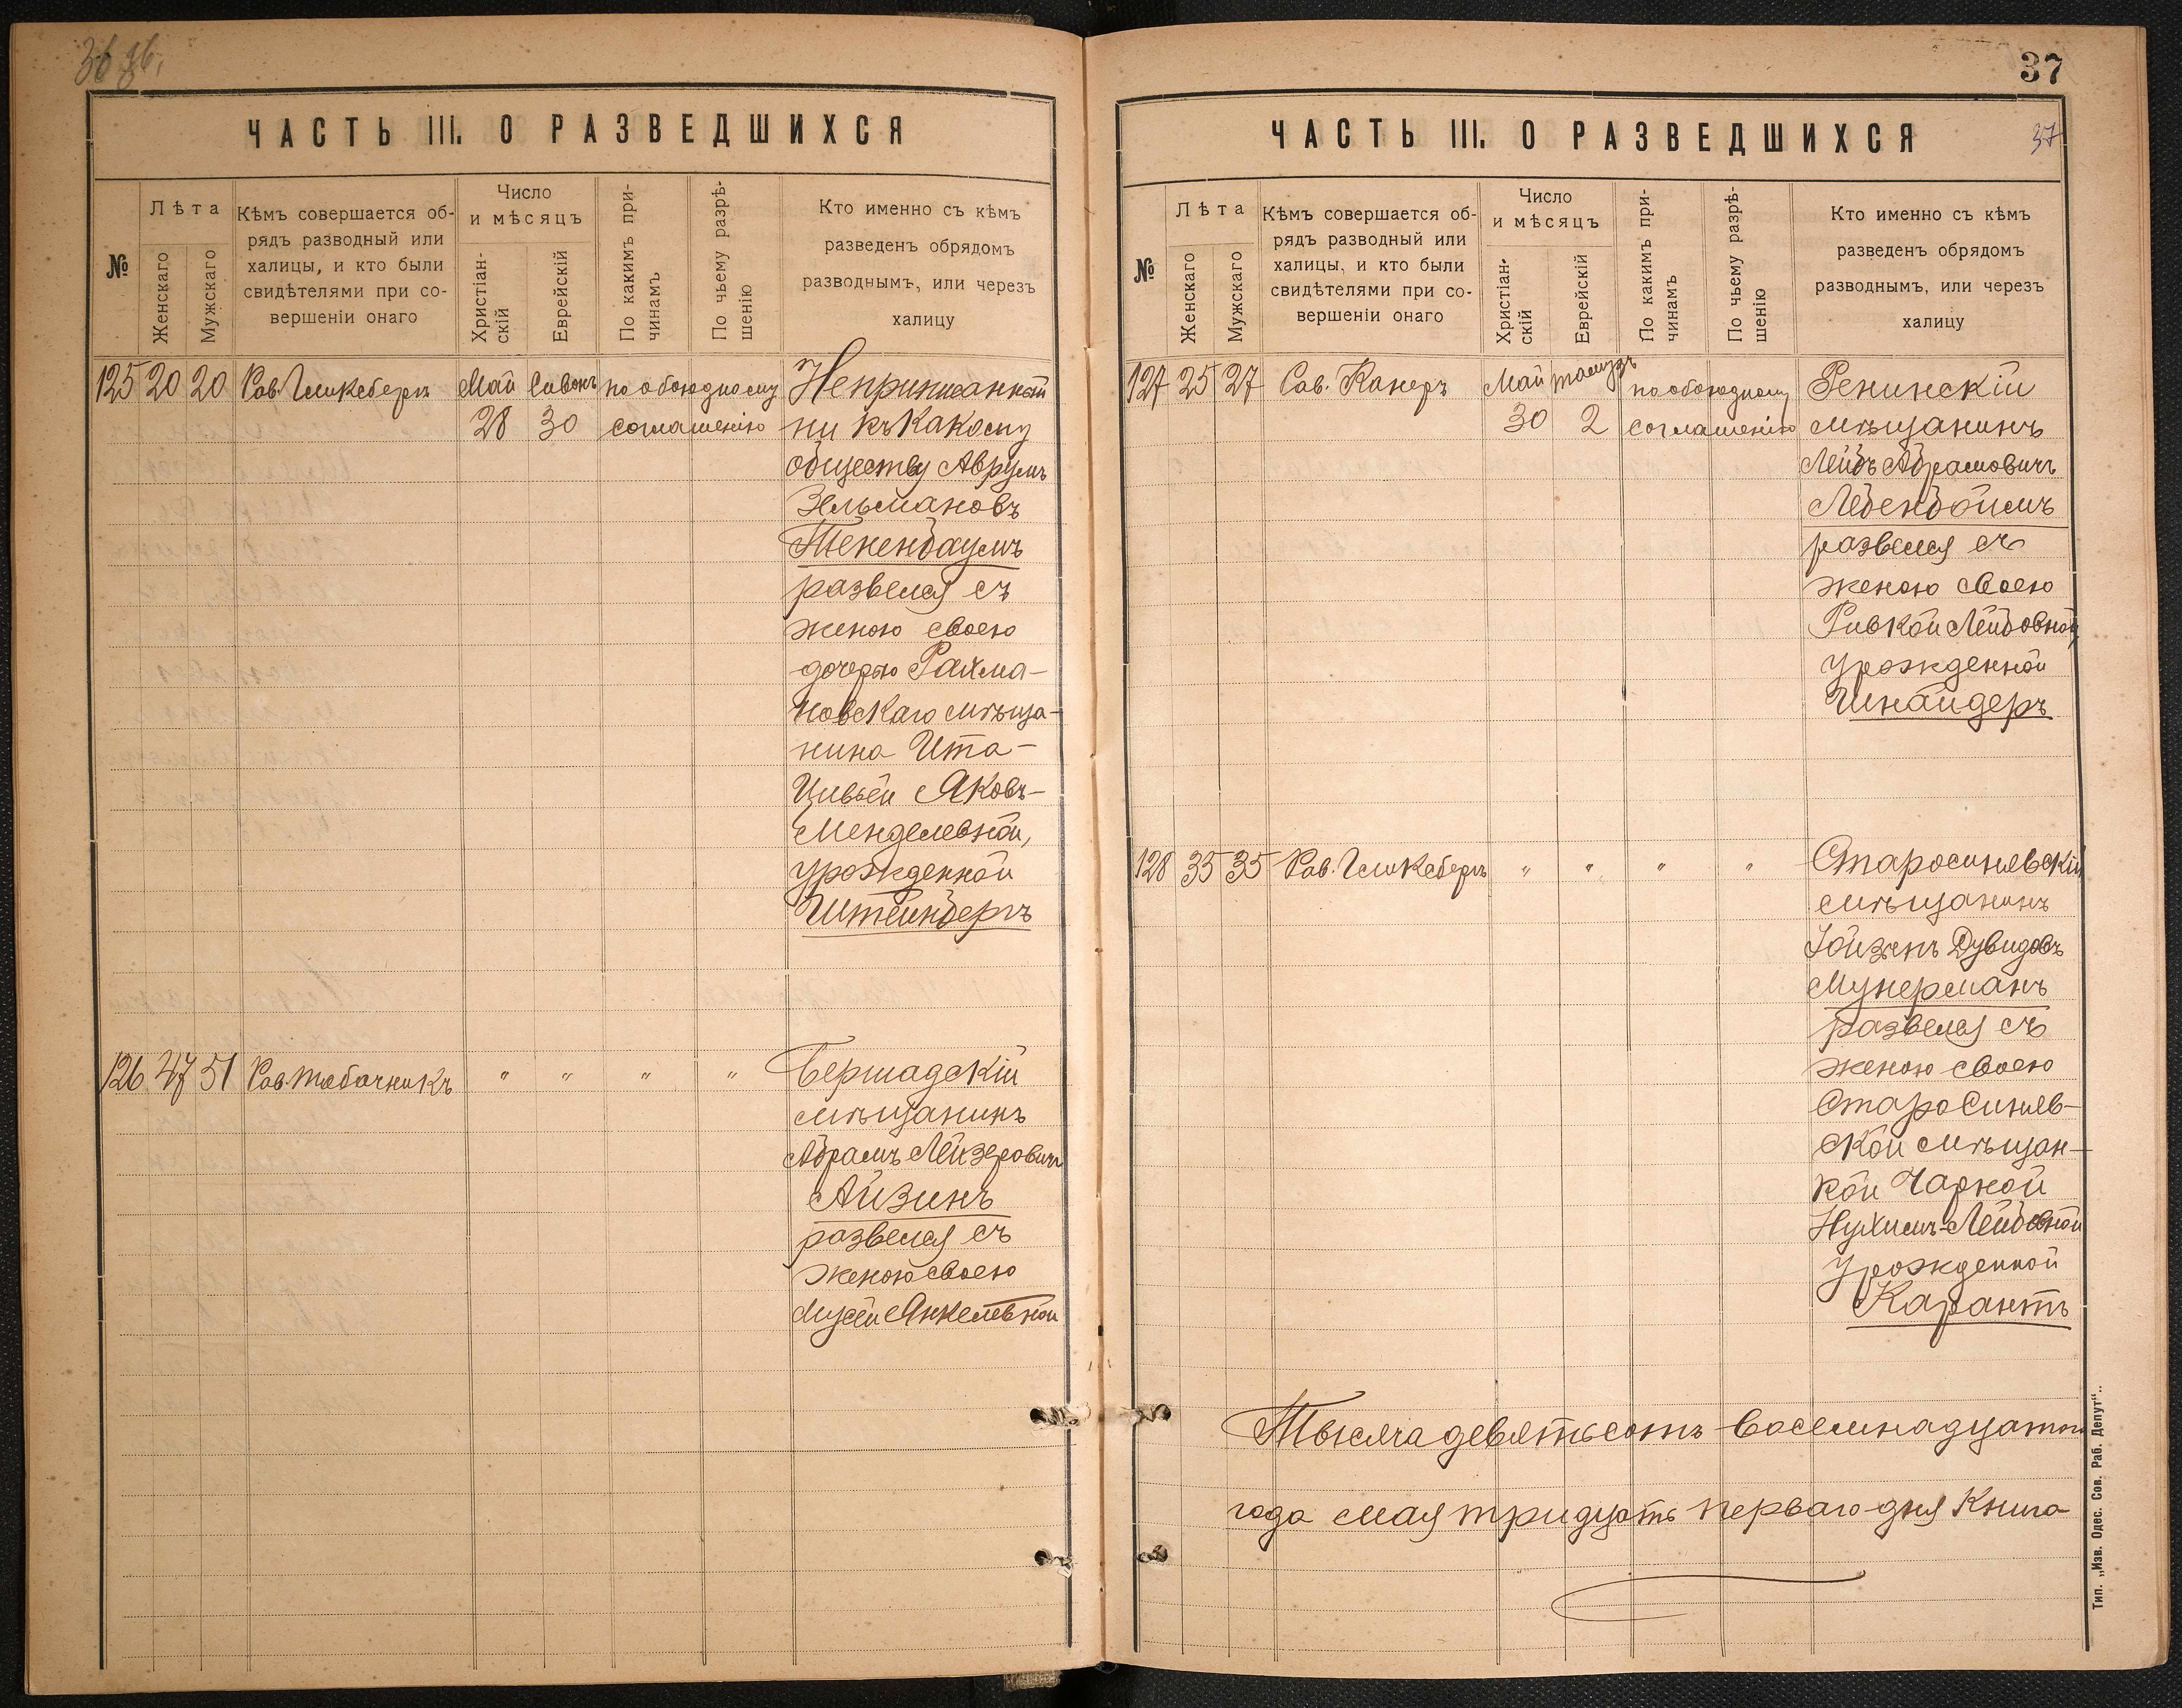 36 36.
ЧАСТЬ III. О РАЗВЕДШИХСЯ
№
Лѣта
Женскаго
Мужскаго
Кѣмъ совершается об-
рядъ разводный или
халицы, и кто были
свидѣтелями при со-
вершеніи онаго
Число
и мѣсяцъ
Христіан-
скій
Еврейскій
По какимъ при-
чинамъ
По чьему разрѣ-
шенію
Кто именно съ кѣмъ
разведенъ обрядомъ
разводнымъ, или черезъ
халицу
125 20 20 Рав. Гликсбергъ Май Сивонъ по обоюдному Неприписанный
28 30 соглашенію ни къ какому
обществу Аврумъ
Зельмановъ
Текенбаумъ
развелся съ
женою своею
дочерью Рахма-
новскаго мѣща-
нина Ита-
Цивьей Яковъ-
Менделевной,
урожденной
Штейнбергъ
126 47 51 Рав. Табачникъ " " " " Бершадскій
мѣщанинъ
Абрамъ Лейзеровичъ
Айзинъ
развелся съ
женою своею
Мусей Янкелевной
37
ЧАСТЬ III. О РАЗВЕДШИХСЯ
37
№
Лѣта
Женскаго
Мужскаго
Кѣмъ совершается об-
рядъ разводный или
халицы, и кто были
свидѣтелями при со-
вершеніи онаго
Число
и мѣсяцъ
Христіан-
скій
Еврейскій
По какимъ при-
чинамъ
По чьему разрѣ-
шенію
Кто именно съ кѣмъ
разведенъ обрядомъ
разводнымъ, или черезъ
халицу
127 25 27 Канеръ Май тамузъ по обоюдному Ренинскій
30 2 соглашенію мѣщанинъ
Лейбъ Абрамовичъ
Лебенбоймъ
развелся съ
женою своею
Ривкой Лейбовной
урожденной
Шнайдеръ
128 35 35 Рав. Гликсбергъ " " " " Старосинявскій
мѣщанинъ
Іойзепъ Дувидовъ
Мунерманъ
развелся съ
женою своею
Старосиняв-
ской мѣщан-
кой Чарной
Нухимъ-Лейбовной
урожденной
Карантъ
Тысяча девятьсотъ восемнадцатаго
года мая тридцать перваго дня книга
Тип. „Изв. Одес. Сов. Раб. Депут“..